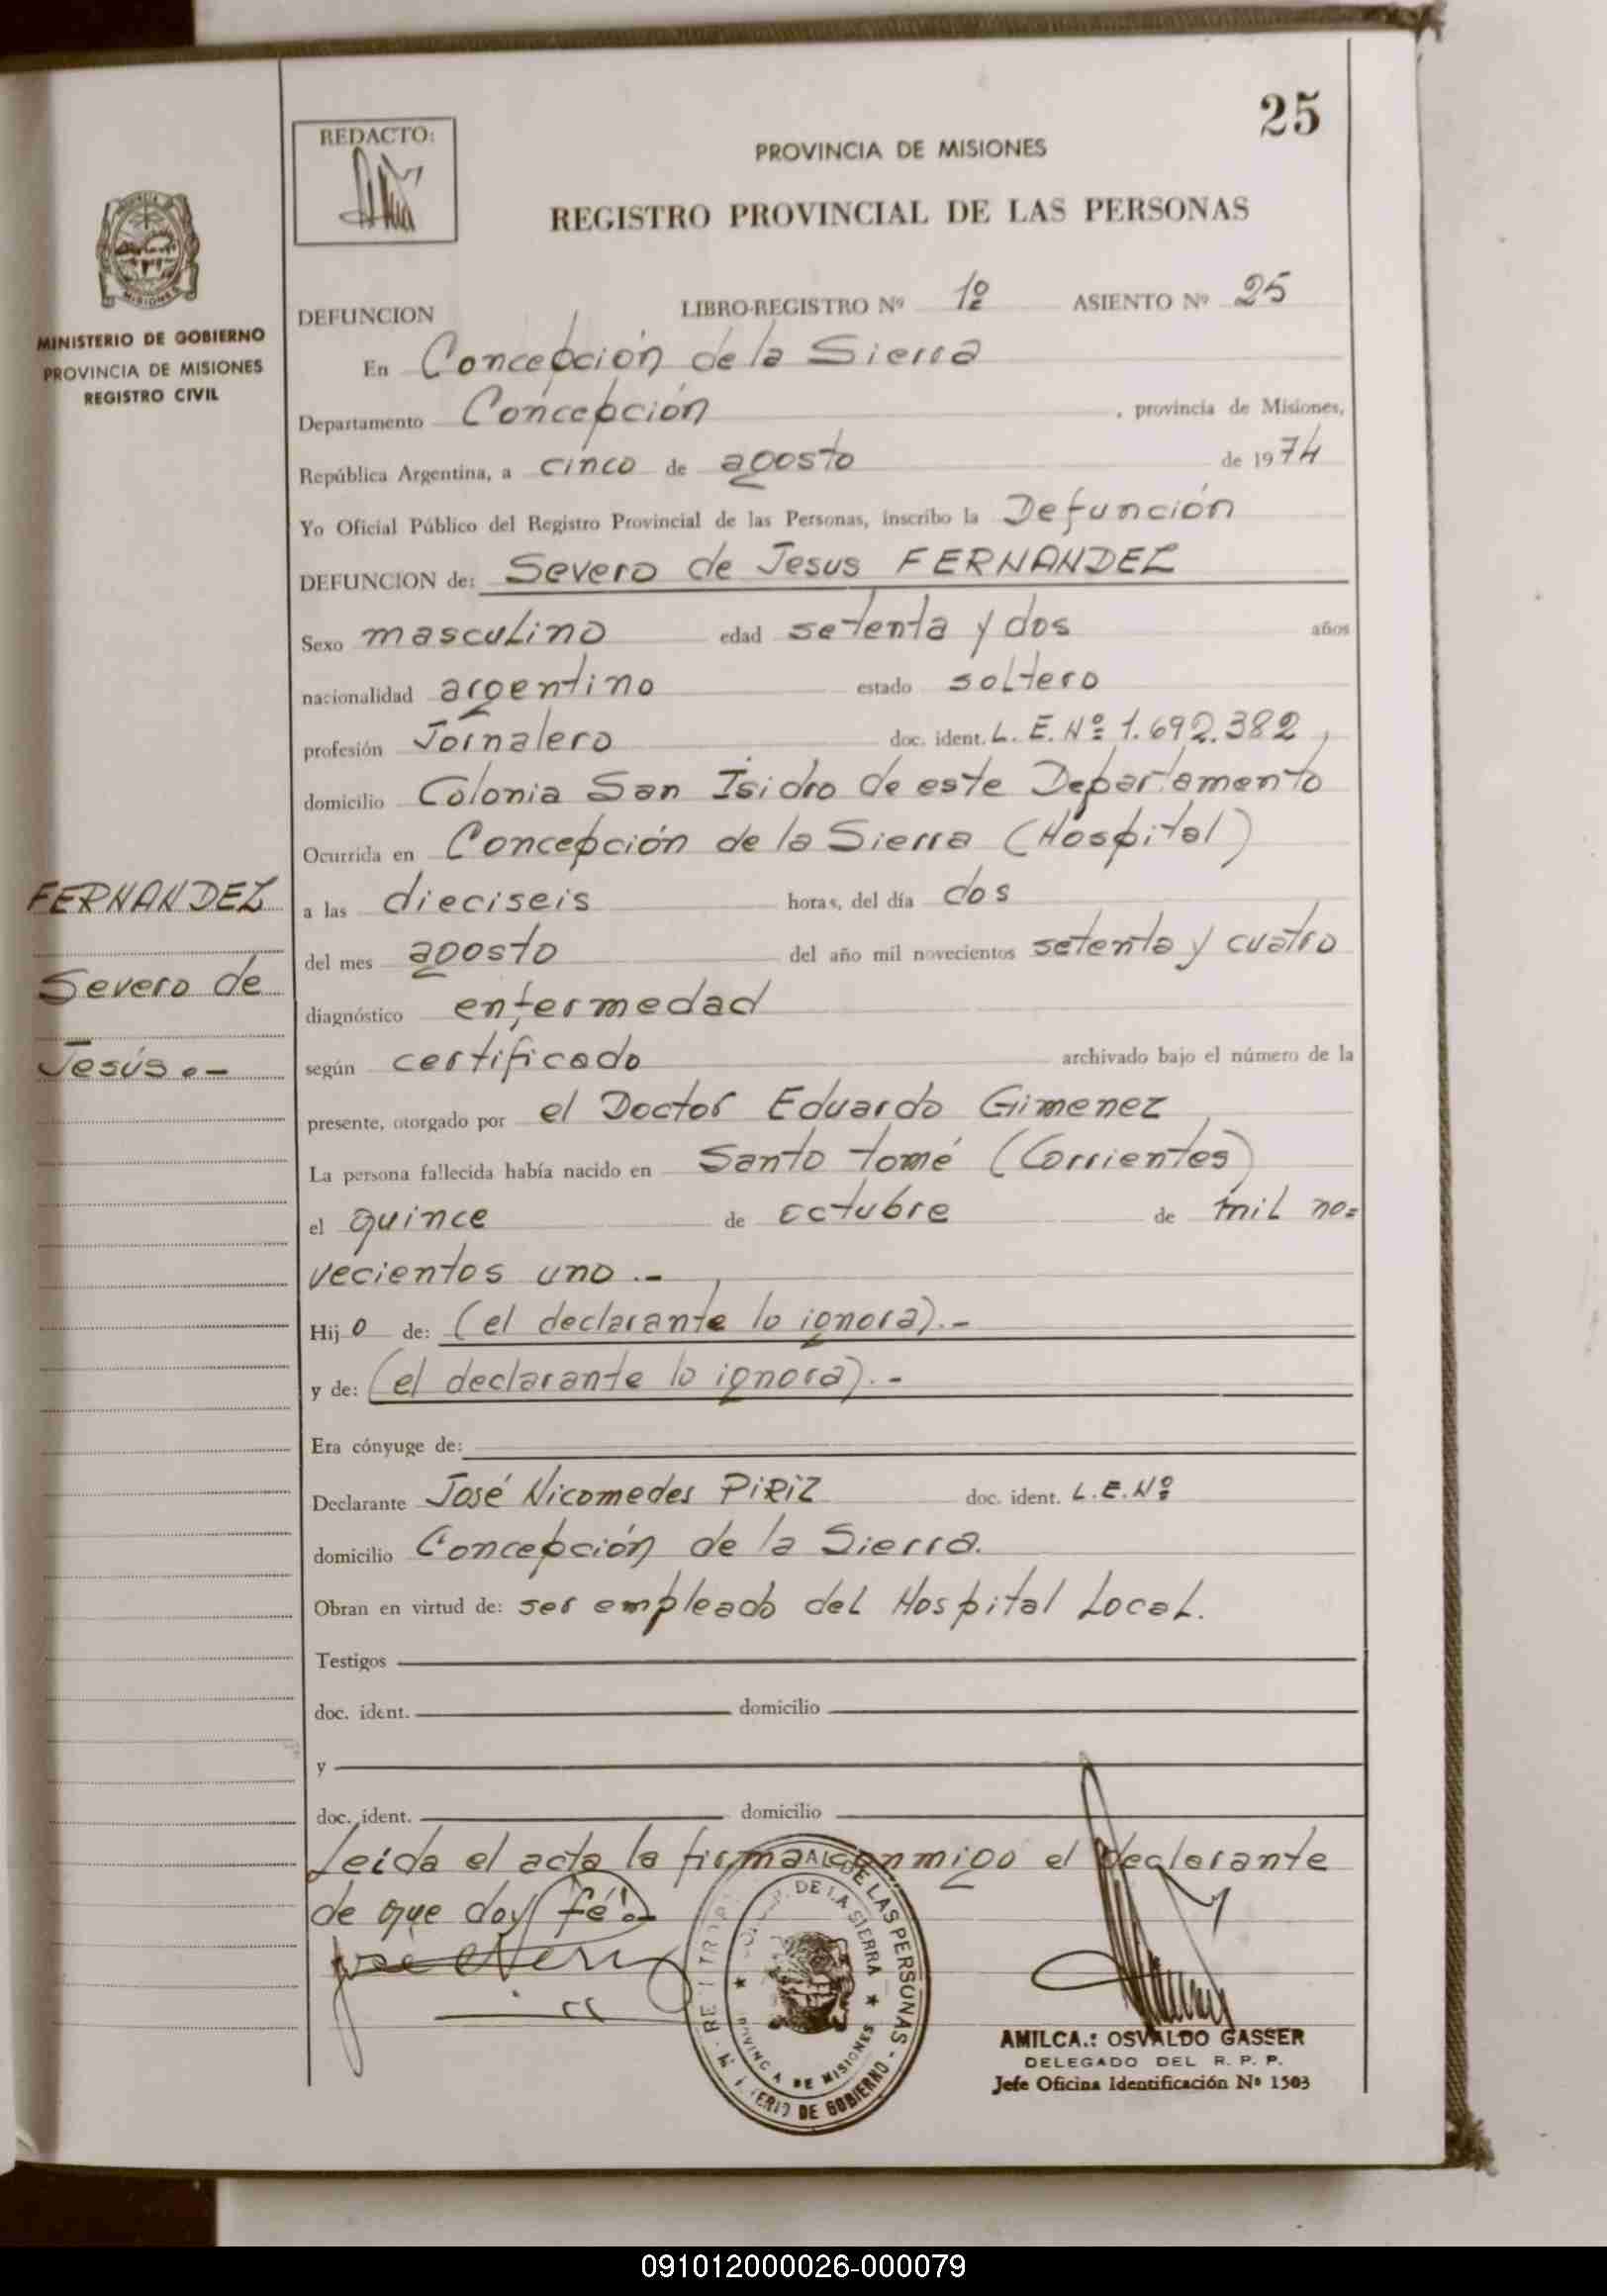 25
REDACTO:
PROVINCIA DE MISIONES
REGISTRO PROVINCIAL DE LAS PERSONAS
MISIONES
MINISTERIO DE GOBIERNO
PROVINCIA DE MISIONES
REGISTRO CIVIL
DEFUNCION LIBRO-REGISTRO Nº 1º ASIENTO Nº 25
En Concepción de la Sierra
Departamento Concepción, provincia de Misiones,
República Argentina, a cinco de agosto de 1974
Yo Oficial Público del Registro Provincial de las Personas, inscribo la Defunción
DEFUNCION de: Severo de Jesus FERNANDEZ
Sexo masculino edad setenta y dos años
nacionalidad argentino estado soltero
profesión Jornalero doc. ident. L. E. Nº 1.692.382,
domicilio Colonia San Isidro de este Departamento
Ocurrida en Concepción de la Sierra (Hospital)
FERNANDEZ
Severo de
Jesús.-
a las dieciseis horas, del día dos
del mes agosto del año mil novecientos setenta y cuatro
diagnóstico enfermedad
según certificado archivado bajo el número de la
presente, otorgado por el Doctor Eduardo Gimenez
La persona fallecida había nacido en Santo tomé (Corrientes)
el quince de octubre de mil no=
vecientos uno.-
Hijo de: (el declarante lo ignora).-
y de: (el declarante lo ignora).-
Era cónyuge de:
Declarante José Nicomedes PIRIZ doc. ident. L.E.Nº
domicilio Concepción de la Sierra.
Obran en virtud de: ser empleado del Hospital Local.
Testigos
doc. ident. domicilio
y
doc. ident. domicilio
Leída el acta la firma conmigo el declarante
de que doy fé.-
DE LAS PERSONAS
DE LA SIERRA
DE MISIONES
DE GOBIERNO
AMILCA.: OSVALDO GASSER
DELEGADO DEL R. P. P.
Jefe Oficina Identificación Nº 1503
091012000026-000079